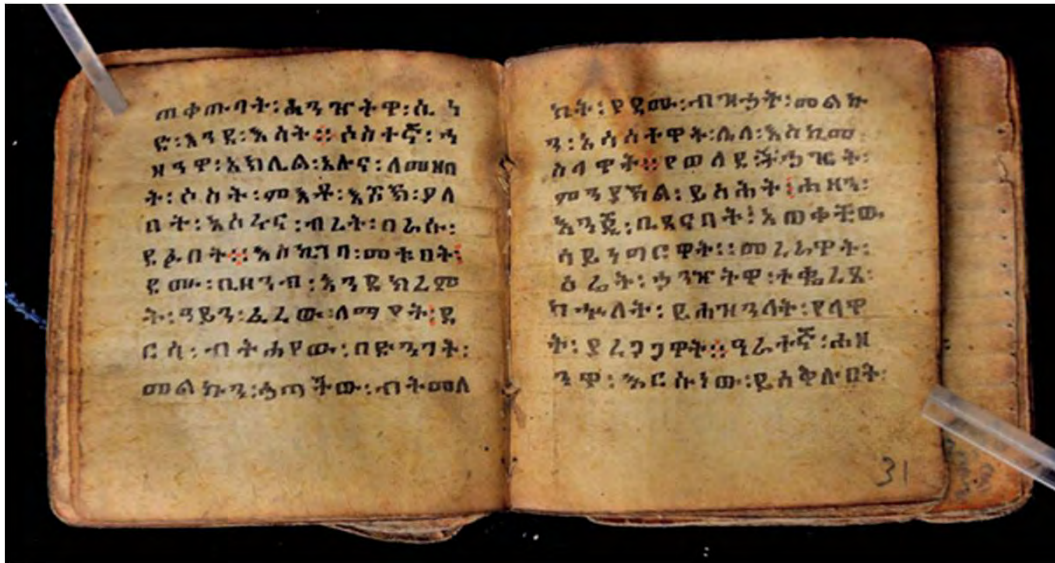 ጠቀጡባት፡ ሕንፃትዋ፡ ሲ ነ
ድ፡ እንደ፡ እሳት። ሶስተኛ፡ ኀ
ዘንዋ፡ አክሊል፡ አሉና፡ ለመዘበ
ት፡ ሶስት፡ ምእዶ፡ እሾኽ፡ ያለ
በት፡ አሰሩና፡ ብረት፡ በራሱ፡
ደፉበት። እስኪገባ፡ መቱበት፡
ደሙ፡ ቢዘንብ፡ እንደ ክረም
ት፡ ዓይን፡ ፈረ ው፡ ለማየት፡ ደ
ርሳ፡ ብትሐየው፡ በድንገት፡
መልኩን፡ ዕጣችው፡ ብትመለ
ከት፡ የደሙ፡ ብዝኃት፡ መልኩ
ን፡ አሳስቶዋት፡ ሌላ፡ እስኪመ
ስላዋት። የወለደ፡ችኃዢት፡
ምን ያኽል፡ ይሰሕት፡ ሐዘን፡
እንጂ፡ ቢደናባት፡ አጠቀቺው
ሳይነግርዋት፡፡ መሪራዋት፡
ዕሬት፡ ኃንዠትዋ፡ ተቈረጸ፡
ካሁለት፡ ይሕዝንላት፡ የላዋ
ት፡ ያረጋጋዋት። ዓራተኛ፡ ሐዘ
ንዋ፡ ኡርሱነው፡ ይሰቅሉበት፡
31